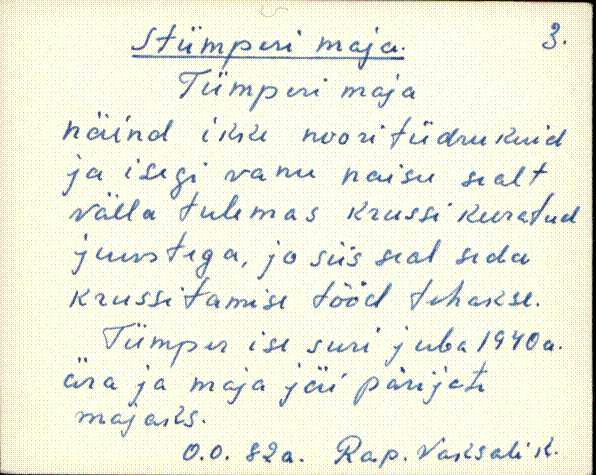 Stümperi maja. 3.
Tümperi maja
näind ikke noori tüdrukuid
ja isegi vanu naisu sealt
välla tulemas krussi keeratud
juustega, jo siis seal seda
krussitamise tööd tehakse.
Tümper ise suri juba 1940a.
ära ja maja jäi pärijate
majaks.
O.O. 82a. Rap. Vaksali k.